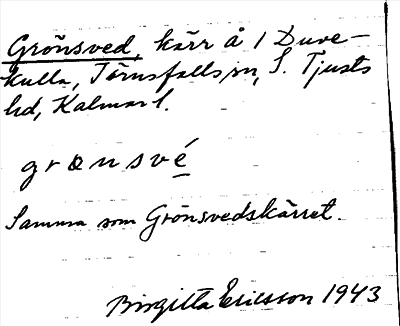 Grönsved, kärr å 1 Duve-
kulla, Törnsfalls sn, S. Tjusts
hd, Kalmar l.
grønsvé
Samma som Grönsvedskärret.
Birgitta Ericsson 1943